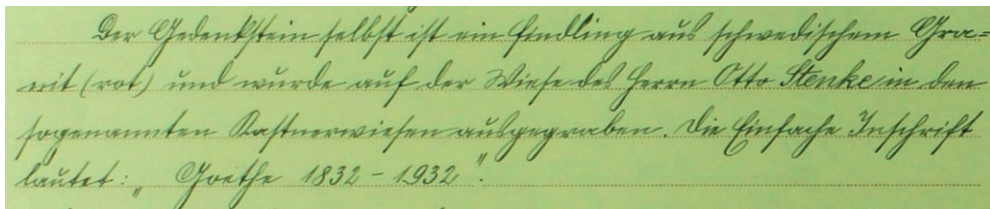 Der Gedenkstein selbst ist ein Findling aus schwedischem Gra=
nit (rot) und wurde auf der Wiese des Herrn Otto Stenke in den
sogenannten Kastnerwiesen ausgegraben. Die Einfache Inschrift
lautet: „ Goethe 1832 – 1932 “.